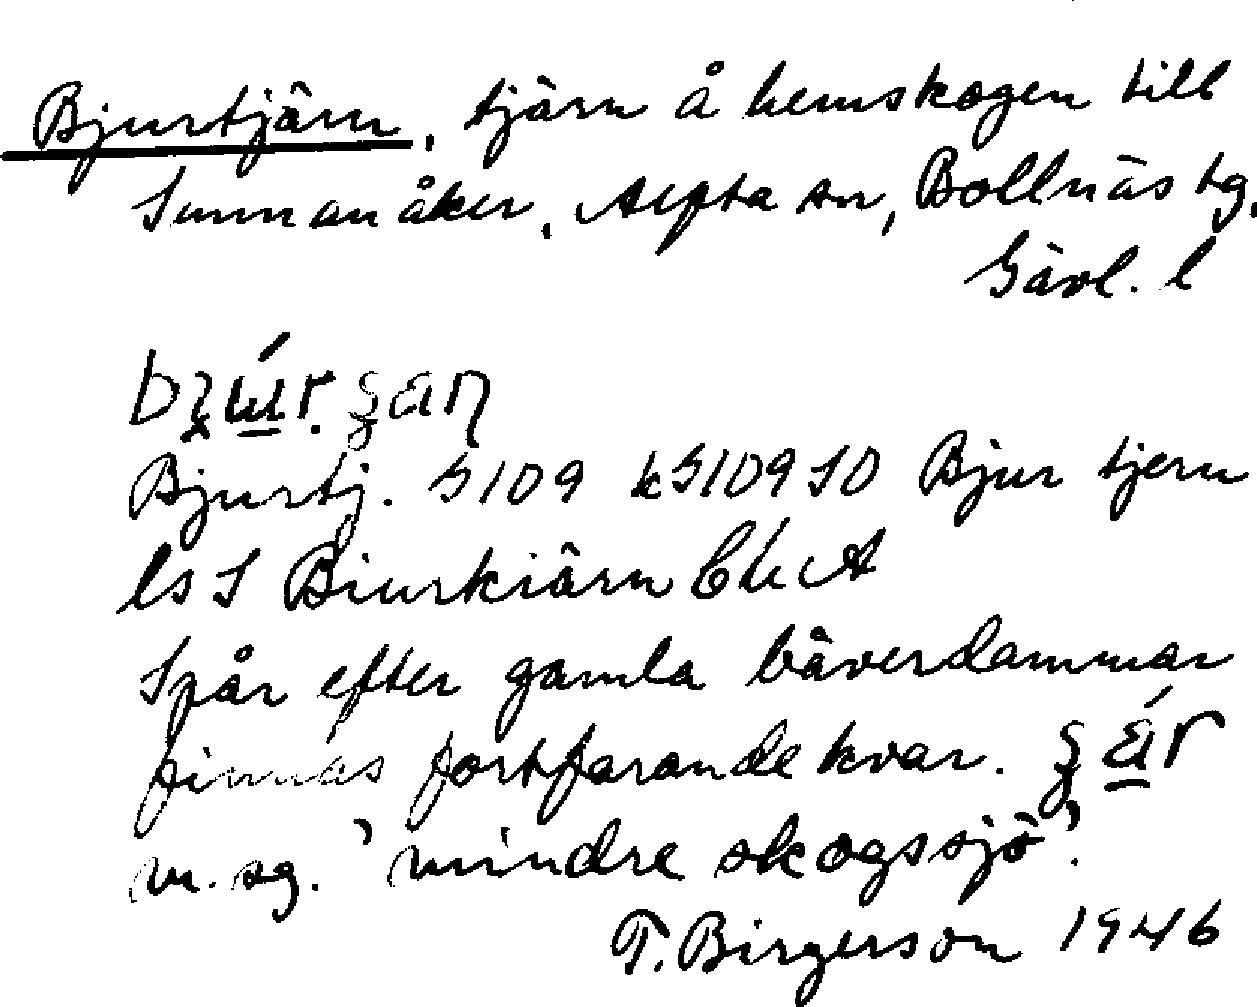 Bjurtjärn, tjärn å hemskogen till
Sunnanåker, Alfta sn, Bollnäs tg,
Gävl. l
Bjurtj. G109 kG109SO Bjur tjern
ls S Biurkiärn
Spår efter gamla bäverdammar
finnas fortfarande kvar.
m. sg. 'mindre skogssjö'.
T. Birgerson 1946